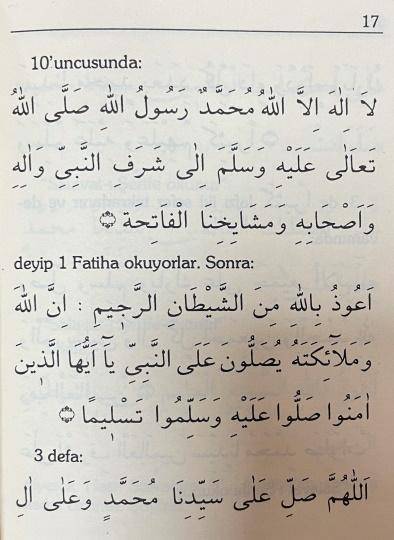 17
10'uncusunda:
لا اِلٰهَ اِلاَّ اللّٰهُ مُحَمَّدٌ رَسُولُ اللّٰهِ صَلَّى اللّٰهُ
تَعَالٰى عَلَيْهِ وَسَلَّمَ اِلٰى شرف النَّبِىِّ وَاٰلِهِ
وَاَصْحَابِهِ وَمَشَايِخِنَا الفَاتحة ۞
deyip 1 Fatiha okuyorlar. Sonra:
اَعُوذُ بِاللّٰهِ مِنَ الشَّيْطَانِ الرَّجِيمِ : اِنَّ اللّٰهَ
وَمَلَآئِكَتَهُ يُصَلُّونَ عَلَى النَّبِىِّ يَآ اَيُّهَا الَّذِينَ
اٰمَنُوا صَلُّوا عَلَيْهِ وَسَلِّمُوا تَسْلِيمًا ۞
3 defa:
اَللّٰهُمَّ صَلِّ عَلٰى سَيِّدِنَا مُحَمَّدٍ وَعَلٰى اٰلِ